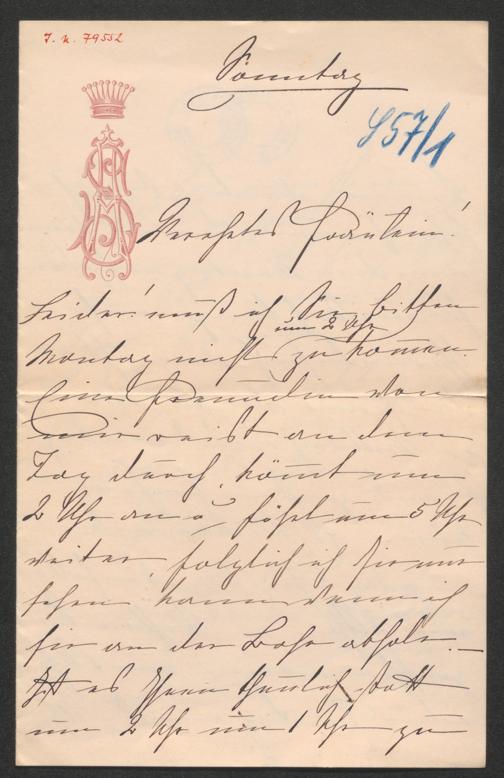 I. N. 79552
Sonntag
857/1
Verehrtes Fräulein!
Leider! muß ich Sie bitten
um 2 Uhr
Montag nicht zu kom̄en.
Eine Freundin von
mir reist an dem
Tag durch, kom̄t um
2 Uhr an u. fährt um 5 Uhr
weiter, folglich ich sie nur
sehen kann wenn ich
sie an der Bahn abhole. —
Ist es Ihnen thunlich statt
um 2 Uhr um 1 Uhr zu